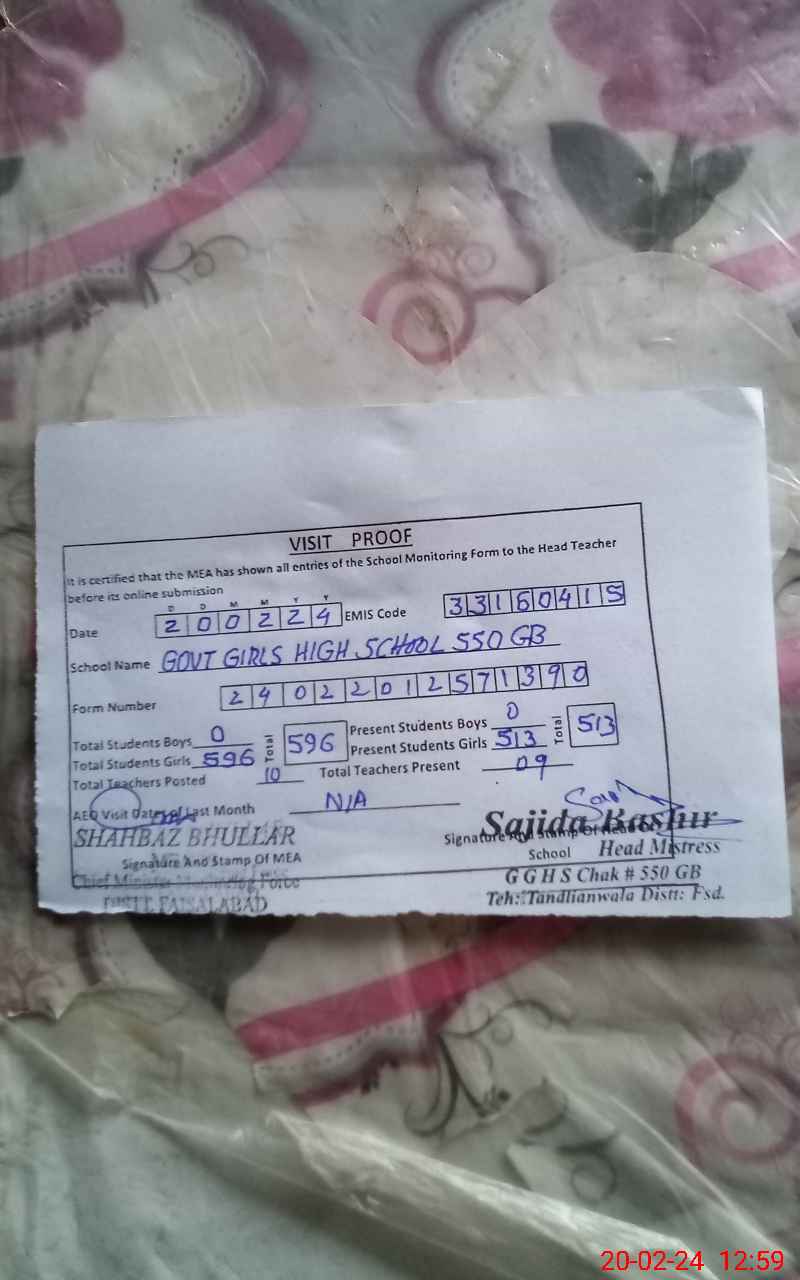 VISIT PROOF
It is certified that the MEA has shown all entries of the School Monitoring Form to the Head Teacher
before its online submission
D D M M Y Y
Date 2 0 0 2 2 4 EMIS Code 3 3 1 6 0 4 1 5
School Name GOVT GIRLS HIGH SCHOOL 550 GB
Form Number 2 4 0 2 2 2 0 1 2 5 7 1 3 9 0
Total Students Boys 0 Total 596 Present Students Boys 0 Total 513
Total Students Girls 596 Present Students Girls 513
Total Teachers Posted 10 Total Teachers Present 09
AEO Visit Date of Last Month N/A
SHAHBAZ BHULLAR Sajida Bashir
Signature And Stamp Of MEA Signature And Stamp Of Head
School Head Mistress
Chief Minister Monitoring Force G G H S Chak # 550 GB
DISTT. FAISALABAD Teh: Tandlianwala Distt: Fsd.
20-02-24 12:59